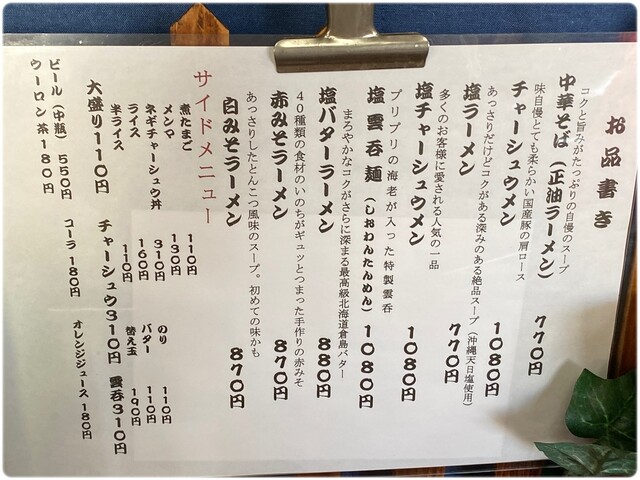 お品書き
コクと旨みがたっぷりの自慢のスープ
中華そば（正油ラーメン） 770円
味自慢とても柔らかい国産豚の肩ロース
チャーシュウメン 1080円
あっさりだけどコクがある深みのある絶品スープ（沖縄天日塩使用）
塩ラーメン 770円
多くのお客様に愛される人気の一品
塩チャーシュウメン 1080円
プリプリの海老が入った特製雲呑
塩雲呑麺（しおわんたんめん） 1080円
まろやかなコクがさらに深まる最高級北海道倉島バター
塩バターラーメン 880円
40種類の食材のいのちがギュッとつまった手作りの赤みそ
赤みそラーメン 870円
あっさりしたとんこつ風味のスープ。初めての味かも
白みそラーメン 870円
サイドメニュー
煮たまご 110円
メンマ 130円
ネギチャーシュウ丼 310円
ライス 160円
半ライス 110円
のり 110円
バター 110円
替え玉 190円
大盛り110円
チャーシュウ310円
雲呑310円
ビール（中瓶）550円
コーラ 180円
オレンジジュース 180円
ウーロン茶180円